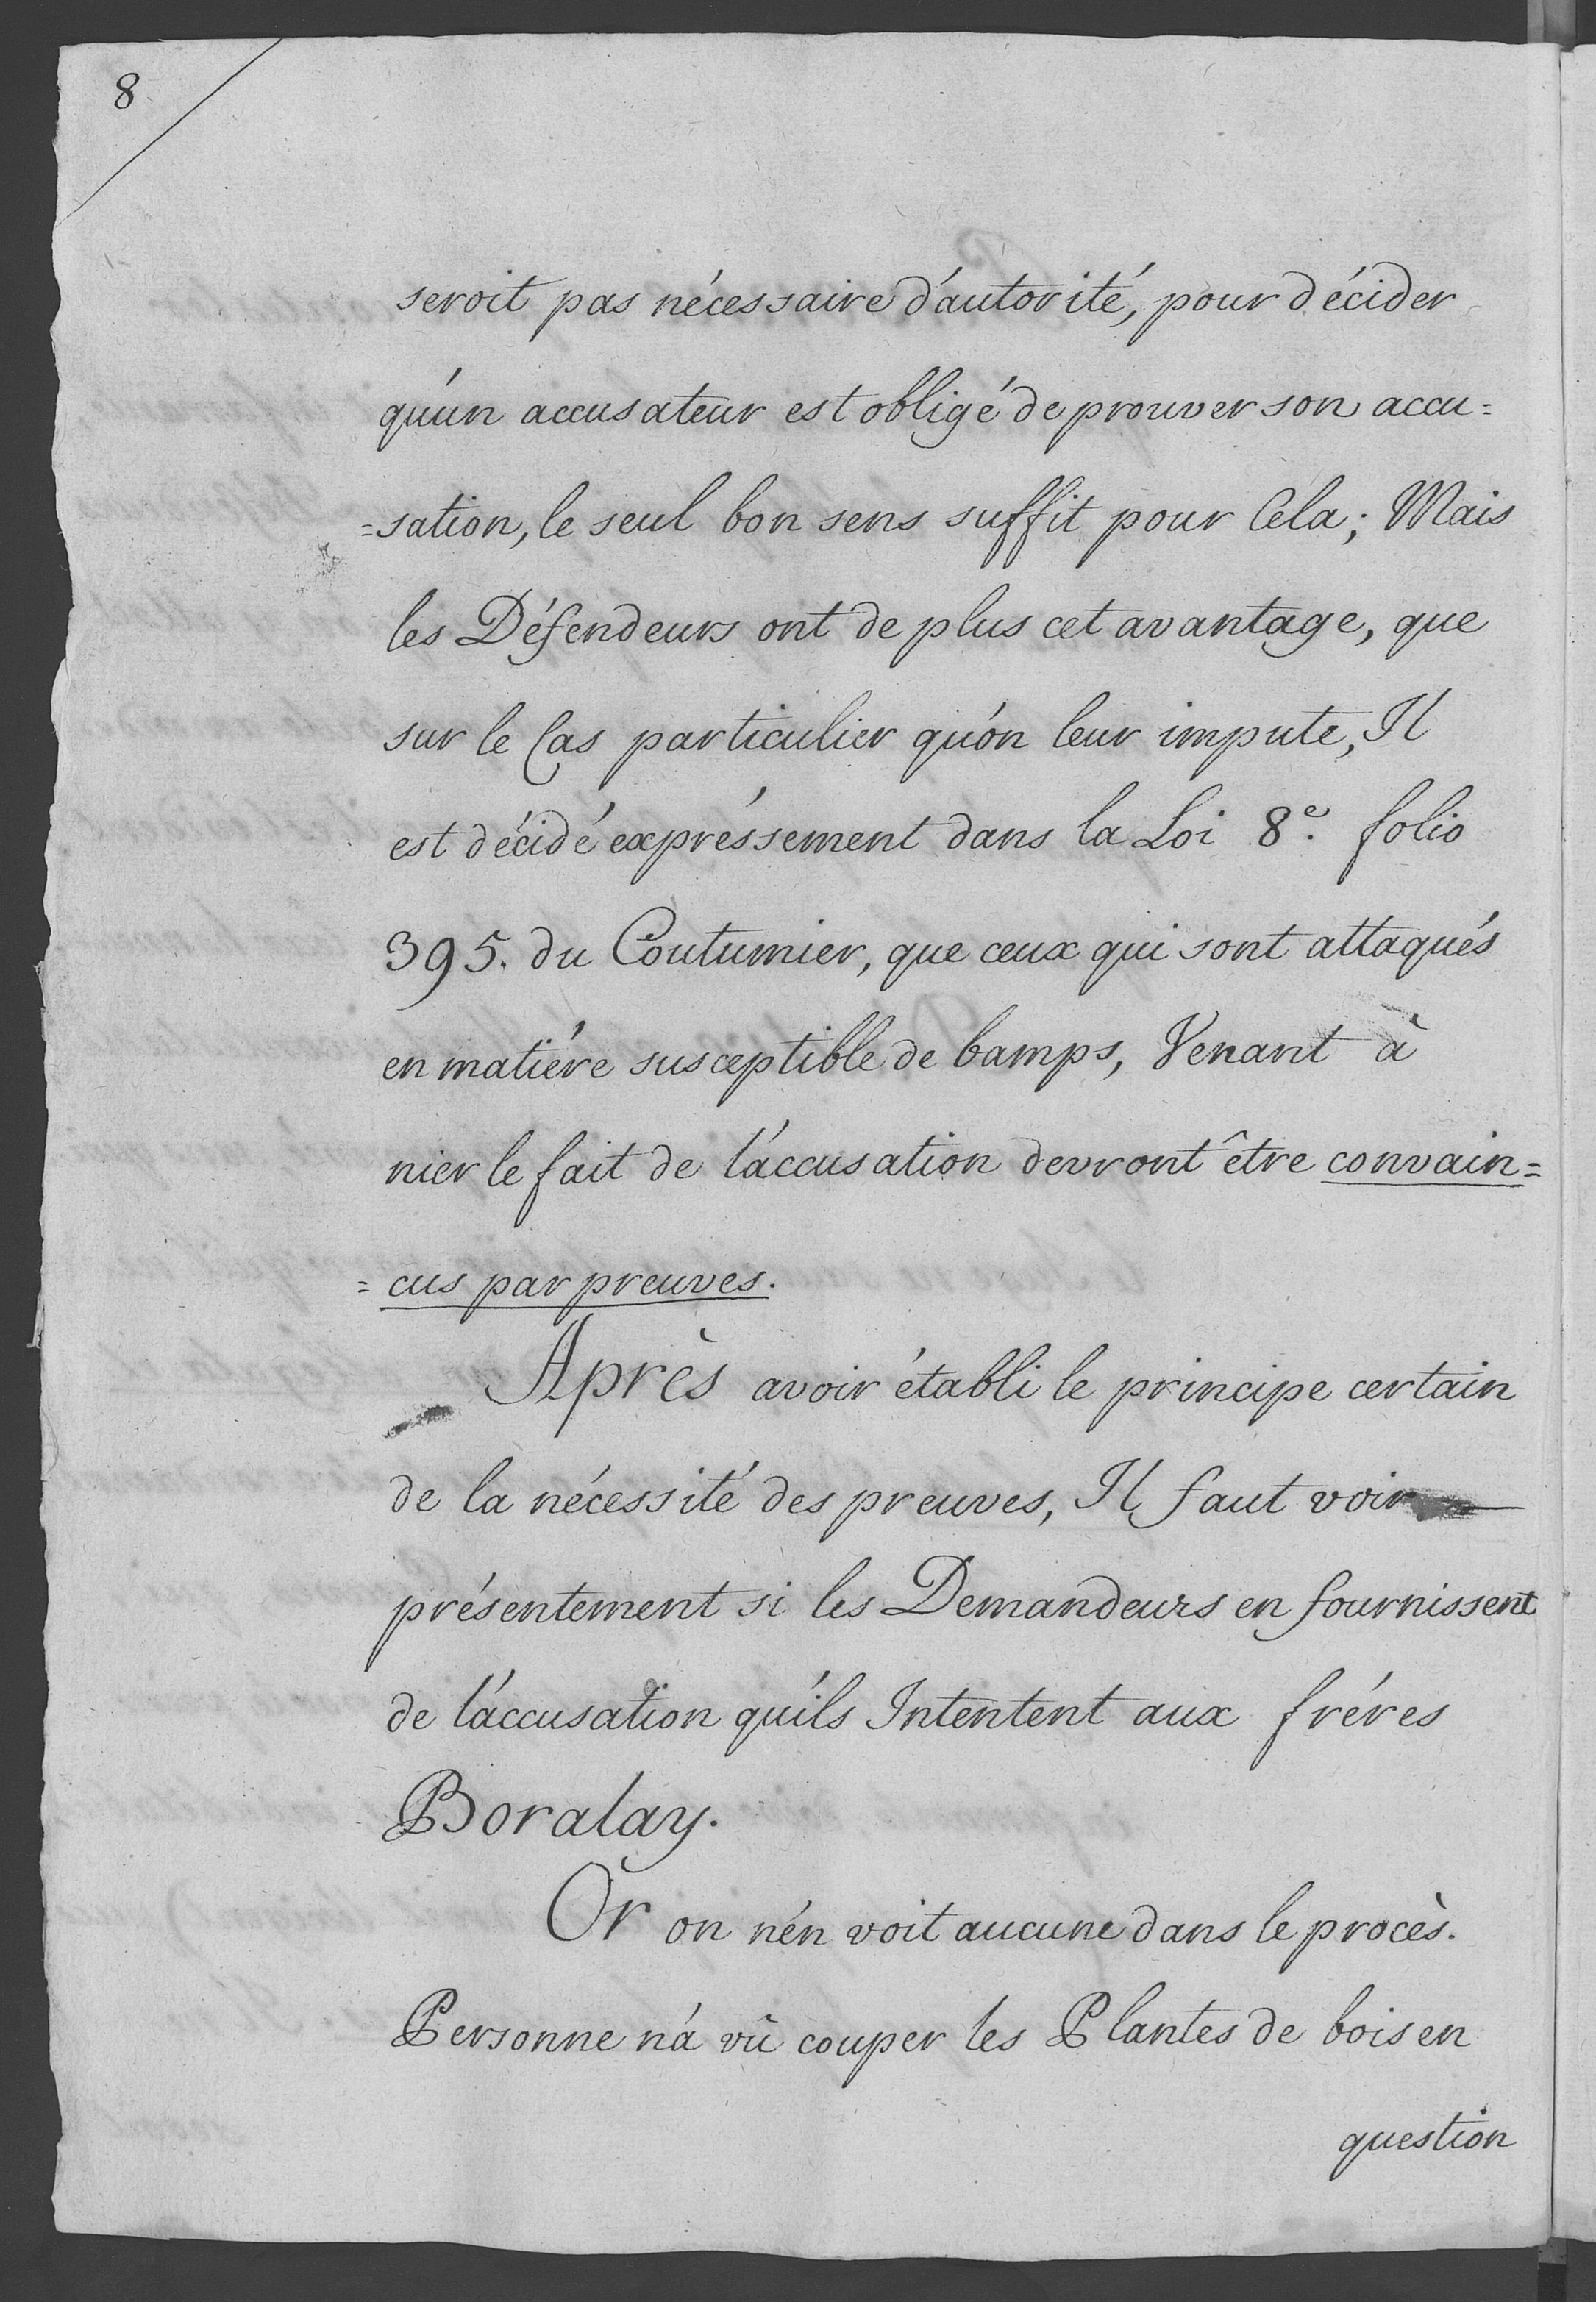 8
seroit pas nécessaire d'autorité, pour décider
qu'un accusateur est obligé de prouver son accu=
=sation, le seul bon sens suffit pour Cela; Mais
les Défendeurs ont de plus cet avantage, que
sur le Cas particulier qu'on leur impute, Il
est décidé expréssement dans la Loi 8e. folio
395. du Coutumier, que ceux qui sont attaqués
en matiére susceptible de bamps, Venant à
nier le fait de l'accusation devront être convain=
=cus par preuves.
Après avoir établi le principe certain
de la nécessité des preuves, Il faut voir
présentement si les Demandeurs en fournissent
de l'accusation qu'ils Intentent aux fréres
Boralay.
Or on n'en voit aucune dans le procès.
Personne n'a vû couper les Plantes de bois en
question